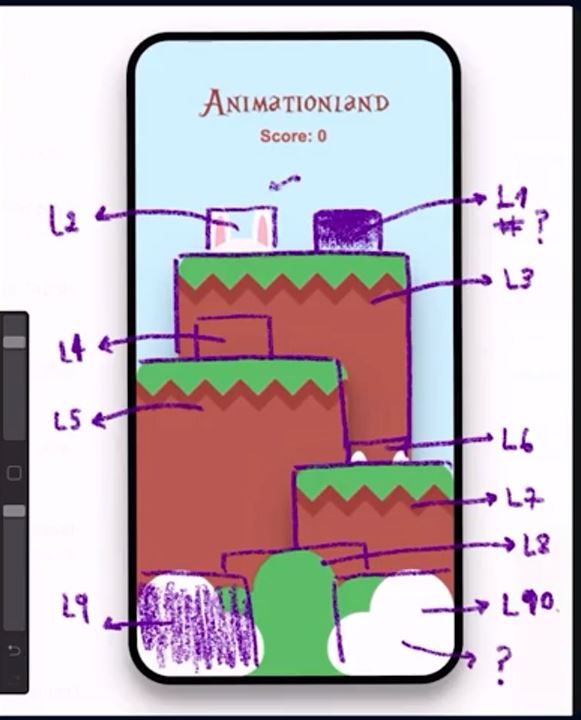 Animationland
Score: 0
L2
L1
#?
L3
L4
L5
L6
L7
L8
L9
L90
?